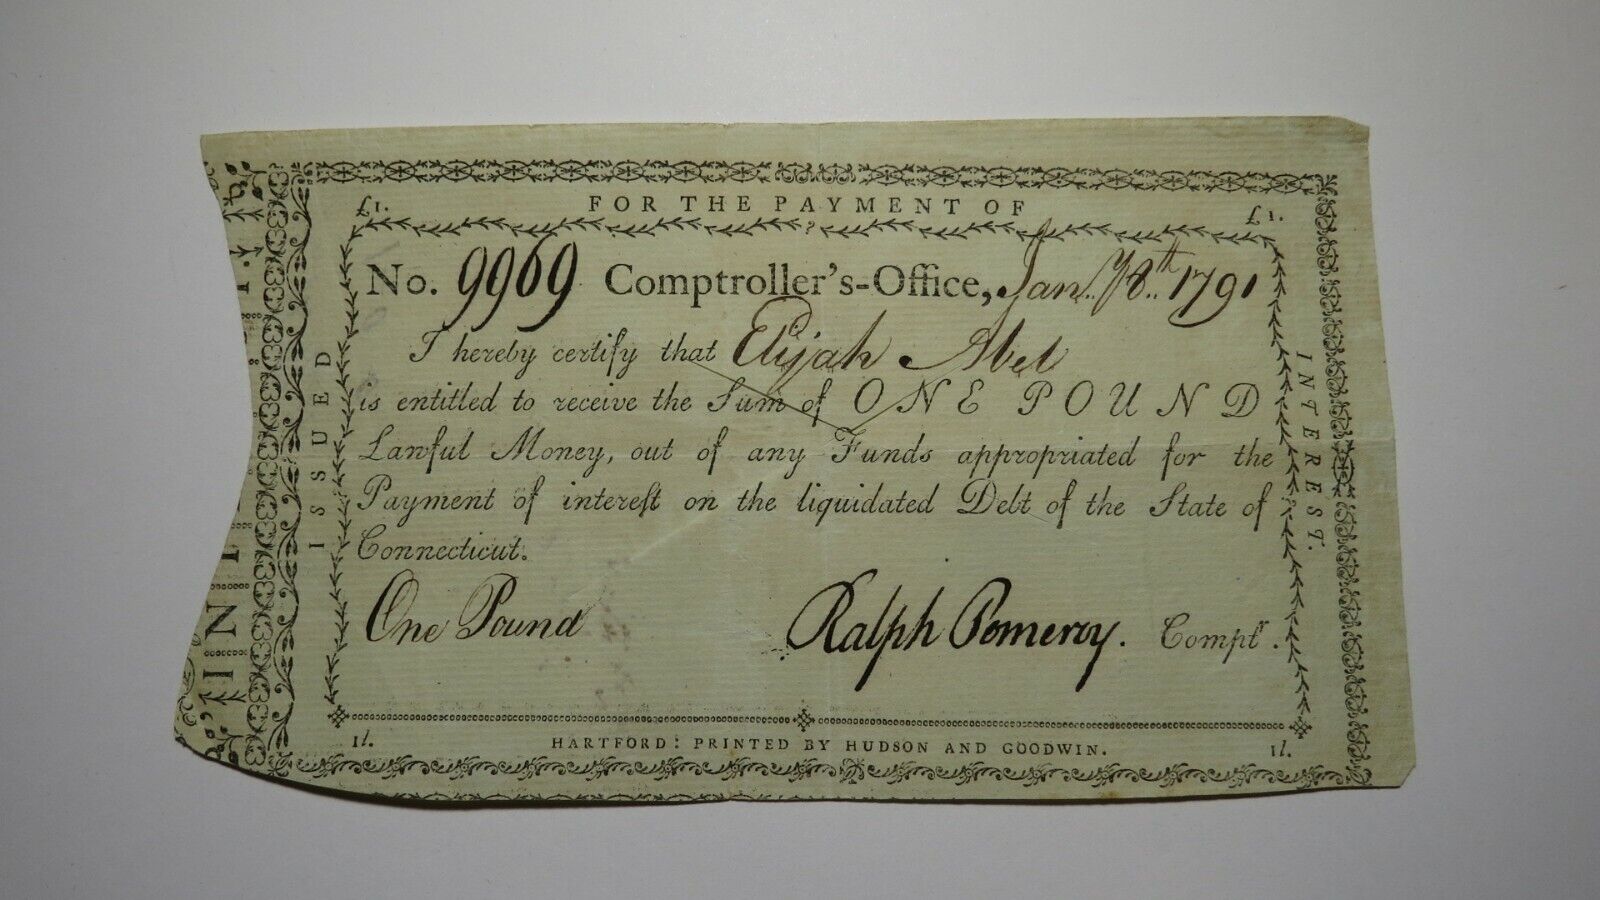 FOR THE PAYMENT OF
£1. £1.
No. 9969 Comptroller's-Office, Jan. 1791
I hereby certify that Elijah Abel
is entitled to receive the Sum of ONE POUND
Lawful Money, out of any Funds appropriated for the
Payment of intereſt on the liquidated Debt of the State of
Connecticut.
One Pound Ralph Pomeroy. Comptr.
1l. HARTFORD: PRINTED BY HUDSON AND GOODWIN. 1l.
ISSUED
INTEREST.